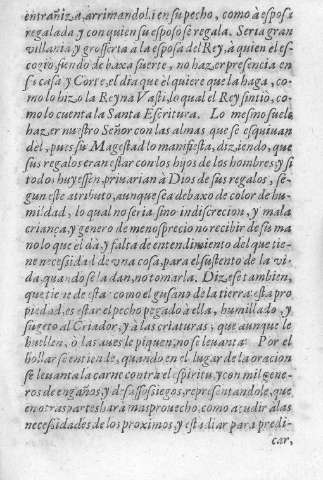 entrañiza, arrimandola en su pecho, como à esposa
regalada, y con quien su esposo se regala. Seria gran
villania y grosseria à la esposa del Rey, à quien el es-
cogio, siendo de baxa suerte, no hazer presencia en
su casa y Corte, el dia que el quiere que la haga, co-
mo lo hizo la Reyna Vasti, lo qual el Rey sintio, co-
mo lo cuenta la Santa Escritura. Lo mesmo suele
hazer nuestro Señor con las almas que se esquivan
del, pues su Magestad lo manifiesta, diziendo, que
sus regalos eran estar con los hijos de los hombres: y si
todos huyessen, privarian à Dios de sus regalos, se-
gun este atributo, aunque sea debaxo de color de hu-
mildad, lo qual no seria sino indiscrecion, y mala
criança, y genero de menosprecio no recibir de su ma
no lo que el dà, y falta de entendimiento del que tie-
ne necessidad de una cosa, para el sustento de la vi-
da, quando se la dan, no tomarla. Dizese tambien,
que tiene de estar como el gusano de la tierra: esta pro
piedad, es estar el pecho pegado à ella, humillado, y
sugeto al Criador, y à las criaturas, que aunque le
huellen, ò las aves le piquen, no se levanta. Por el
hollar se entiende, quando en el lugar de la oracion
se levanta la carne contra el espiritu, y con mil gene-
ros de engaños, y desassossiegos, representandole, que
en otras partes harà mas provecho, como acudir à las
necessidades de los proximos, y estudiar para predi-
car,